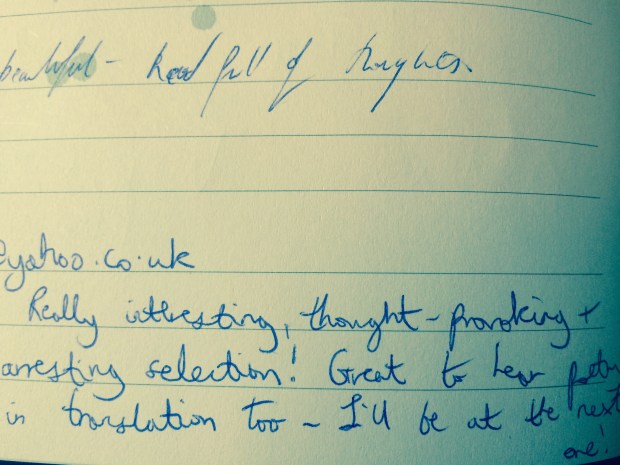 beautiful - head full of thoughts.
@yahoo.co.uk
Really interesting, thought-provoking +
arresting selection! Great to hear poetry
in translation too - I'll be at the next
one!